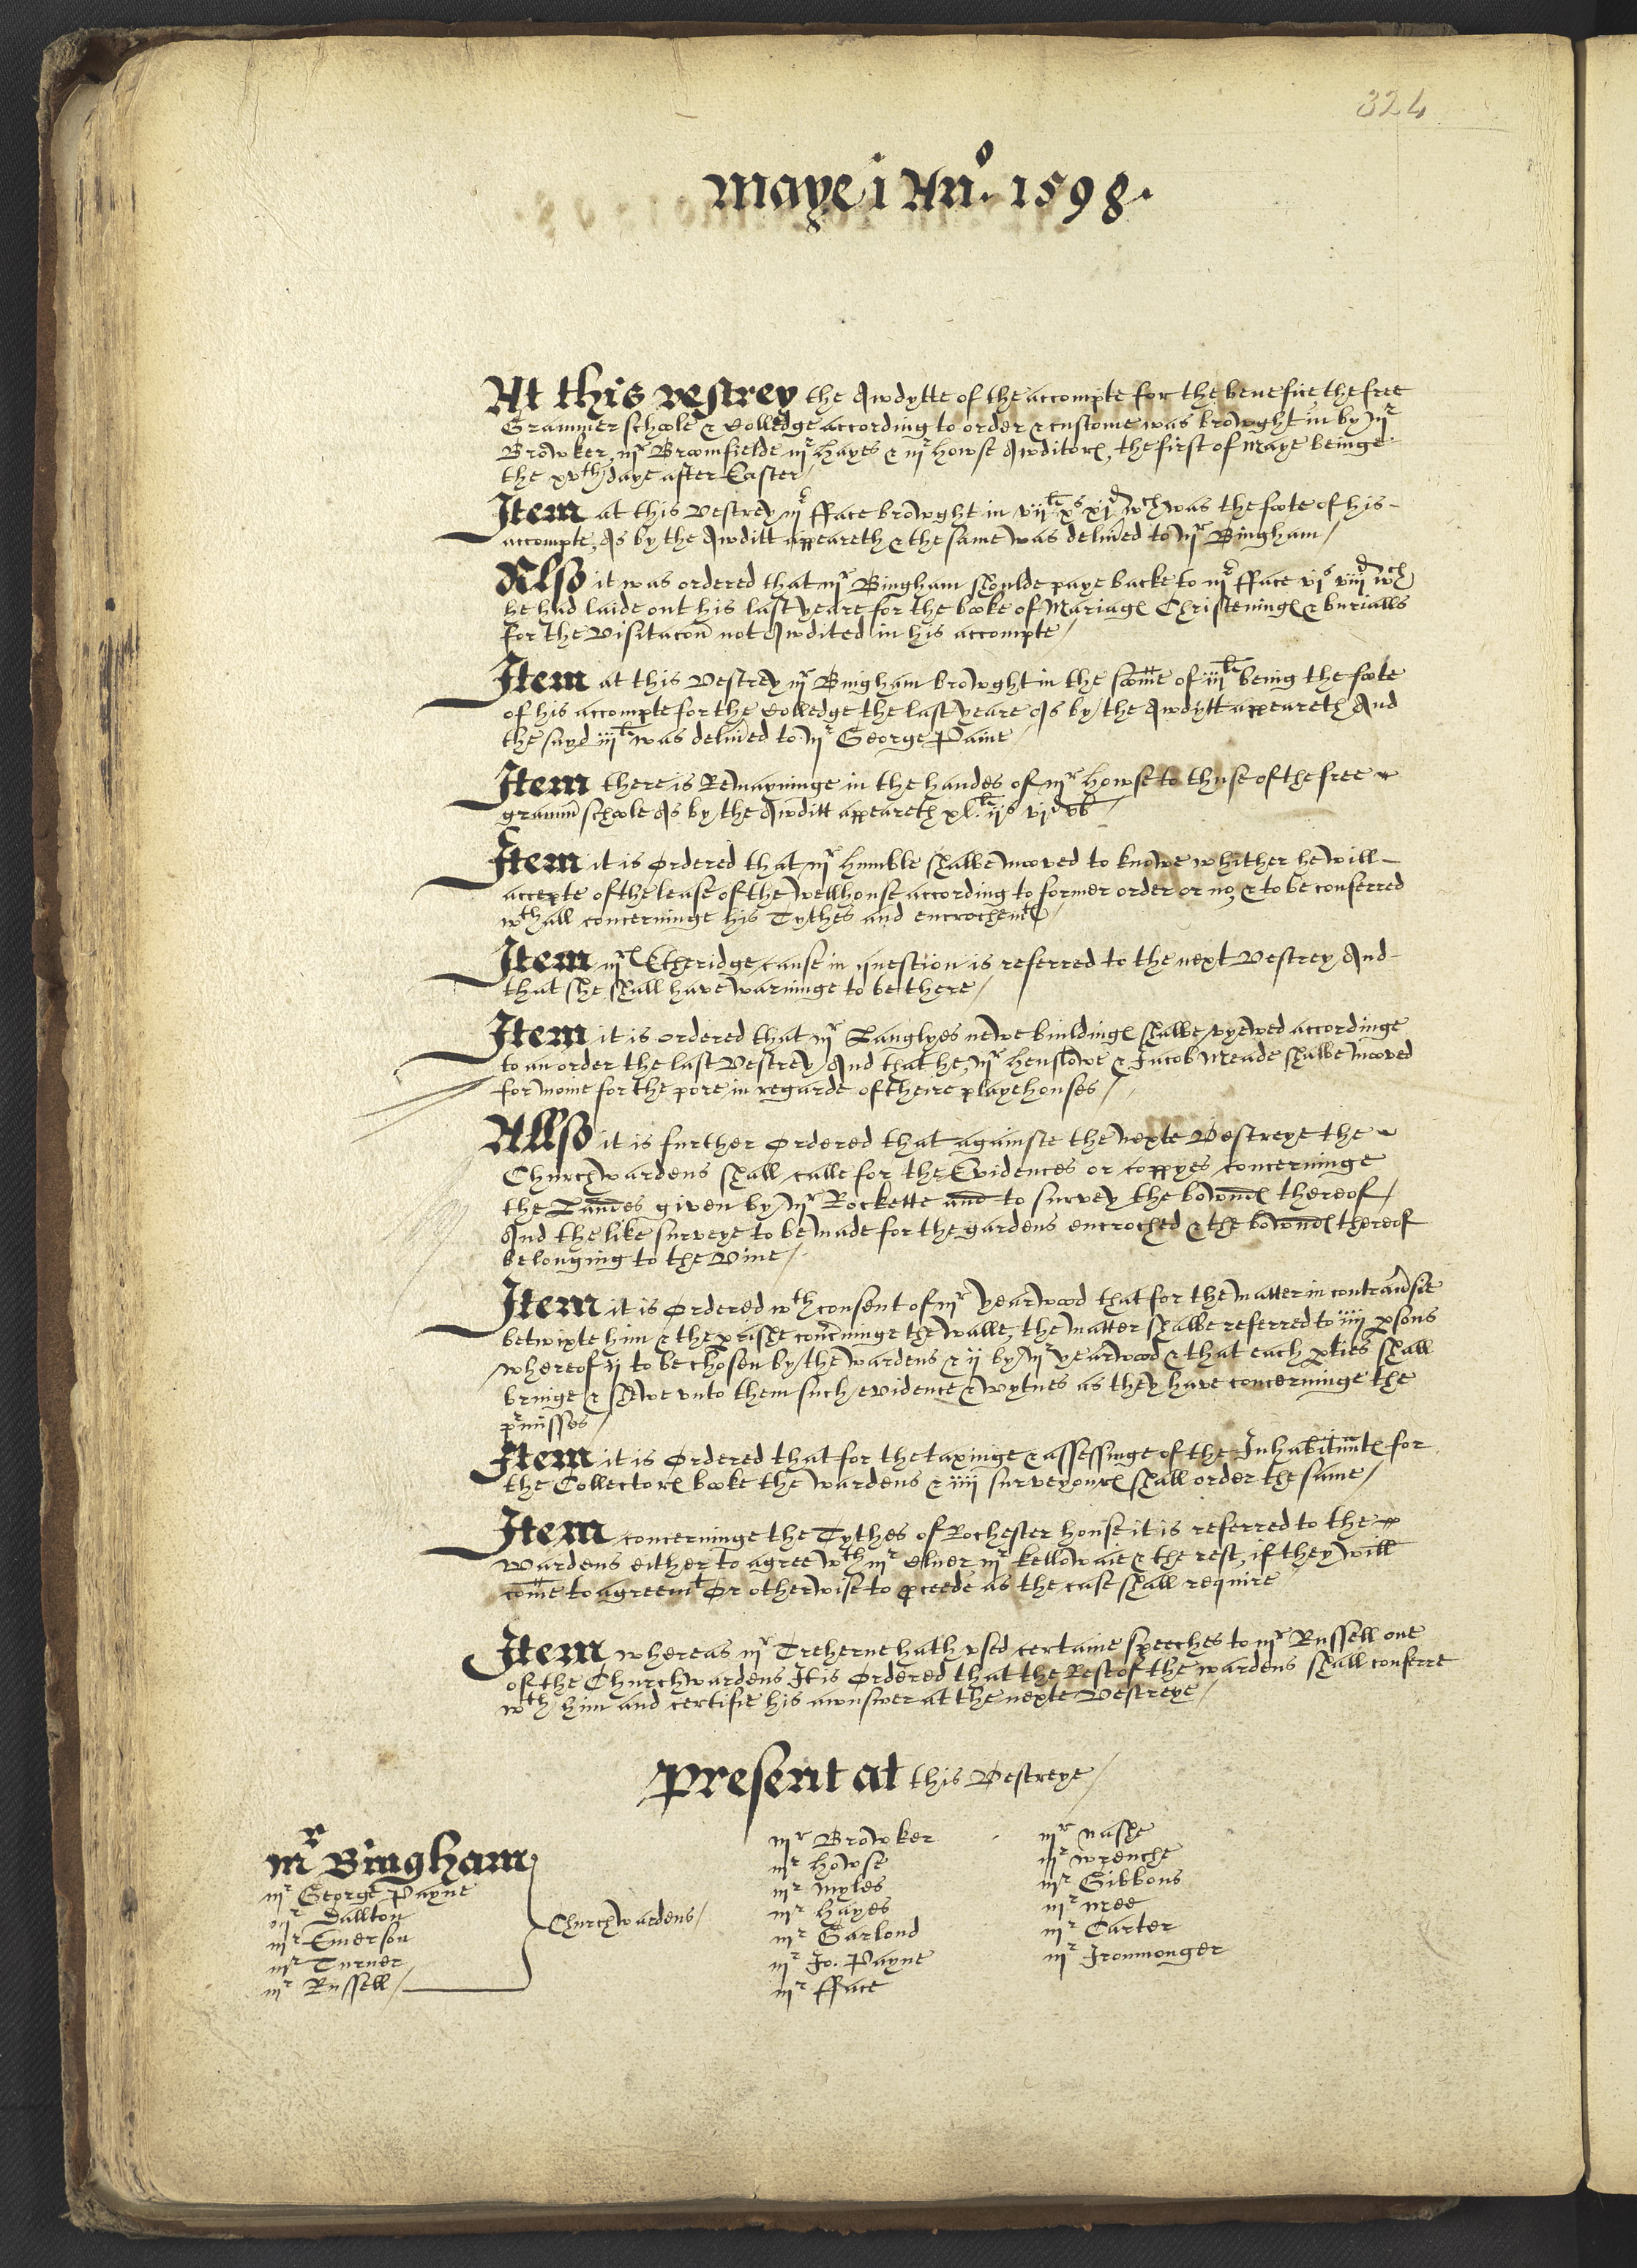 324
Maye i Ano. 1598.
At this vestrey the Awdytte of the accompte for the benefite the free
Grammer schoole & Colledge according to order & custome was browght in by Mr
Browker, mr Broomfielde mr Hayes & mr Howse Awditors, the first of Maye beinge
the xvth daye after Easter /
Item at this Vestrey mr fface browght in viili xs xid wch was the foote of his -
accompte, As by the Awditt appeareth & the same was delived to Mr Bingham /
Also it was ordered that mr Bingham shoulde paye backe to mr fface vis viiid wch
he had laide out his last yeare for the booke of Mariages Christeninges & burialls
for the Visitacon not Awdited in his accompte /
Item at this Vestrey mr Bingham browght in the somme of iiili being the foote
of his accompte for the Colledge the last yeare As by the Awdytt appeareth And
the sayd iiili was delived to mr George Paine /
Item there is Remayninge in the handes of mr Howse to thuse of the free
gramm schoole As by the Awditt appeareth xl.li iis vid ob /
Item it is Ordered that mr Humble shalbe mooved to knowe whither he will -
accepte of the lease of the Wellhouse according to former order or no, & to be conferred
wth all concerninge his Tythes and encrochemtes /
Item mrs Etheridge cause in question is referred to the next Vestrey And -
that she shall have warninge to be there /
Item it is ordered that mr Langlyes newe buildinges shalbe vyewed accordinge
to an order the last Vestrey And that he, mr Henslowe & Jacob Meade shalbe mooved
for monie for the pore in regarde of theire playehouses /
Allso it is further Ordered that againste the Nexte Vestreye the
Churchwardens shall calle for the Evidences or coppyes concerninge
the Landes given by mr Rockette and to survey the bowndes thereof /
And the like surveye to be made for the gardens encroched & the bowndes thereof
belonging to the Vine /
Item it is Ordered wth consent of mr yearwood that for the matter in contraversie
betwixte him & the parishe concerninge the walle, the matter shalbe referred to iiii psons
whereof ii to be chosen by the wardens & ii by mr yearwood & that each pties shall
bringe & shewe vnto them such evidence & wytnes as they have concerninge the
prmisses /
Item it is Ordered that for the taxinge & assessinge of the Inhabitantes for
the Collectors booke the wardens & iiii surveyours shall order the same /
Item concerninge the Tythes of Rochester house it is referred to the
wardens either to agree wth mr Olyver mr kellowaie & the rest, if they will
come to agreemt Or otherwise to pceede as the case shall require
Item whereas mr Treherne hath vsed certaine speeches to mr Russell one
of the Churchwardens It is Ordered that the Rest of the wardens shall conferre
wth him and certifie his awnswer at the nexte Vestreye /
Present at this Vestreye /
mr Bingham
mr George Payne
mr Dallton
mr Emerson
mr Turner
mr Russell /
Churchwardens /
mr Browker
mr Howse
mr Myles
mr Hayes
mr Garlond
mr Jo. Payne
mr fface
mr Nashe
mr Wrenche
mr Gibbons
mr Mee
mr Carter
mr Ironmonger